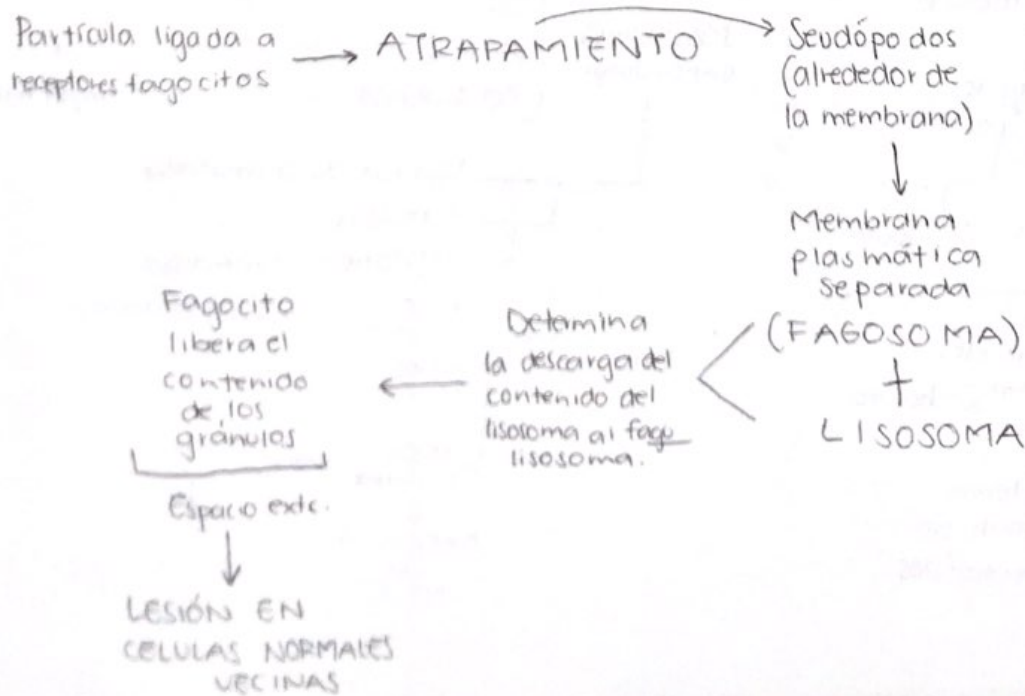 Partícula ligada a
receptores fagocitos
ATRAPAMIENTO
Seudópodos
(alrededor de
la membrana)
Membrana
plasmática
separada
(FAGOSOMA)
+
LISOSOMA
Determina
la descarga del
contenido del
lisosoma al fago
lisosoma.
Fagocito
libera el
contenido
de los
gránulos
Espacio extc.
LESIÓN EN
CELULAS NORMALES
VECINAS